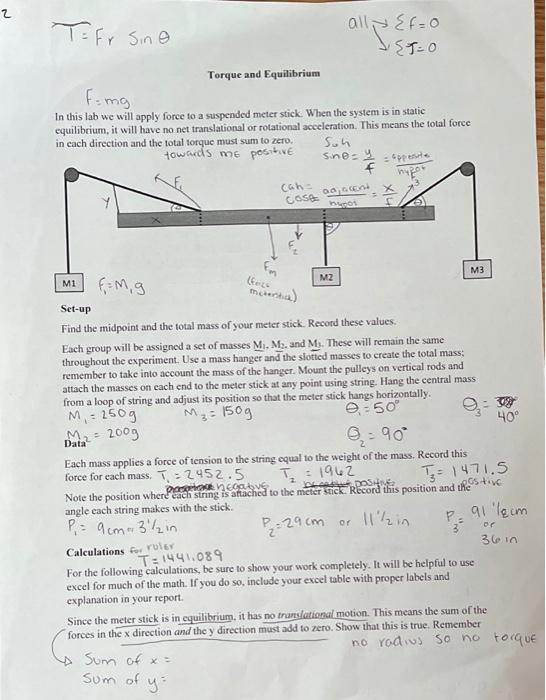 2
T = Fr Sin θ
all → Σf=0
↘ ΣT=0
Torque and Equilibrium
F=mg
In this lab we will apply force to a suspended meter stick. When the system is in static
equilibrium, it will have no net translational or rotational acceleration. This means the total force
in each direction and the total torque must sum to zero.
towards me positive
Soh
Sinθ = y/f = opposite/hypot
Cah=
Cosθ = adjacent/hypot = x/f
F₁
y
x
θ
3
θ
F₂
Fm
(force
meterstick)
θ
M1
F₁=M₁g
M2
M3
Set-up
Find the midpoint and the total mass of your meter stick. Record these values.
Each group will be assigned a set of masses M₁, M₂, and M₃. These will remain the same
throughout the experiment. Use a mass hanger and the slotted masses to create the total mass;
remember to take into account the mass of the hanger. Mount the pulleys on vertical rods and
attach the masses on each end to the meter stick at any point using string. Hang the central mass
from a loop of string and adjust its position so that the meter stick hangs horizontally.
M₁ = 250g M₃ = 150g θ₁ = 50° θ₃ = 40°
M₂ = 200g θ₂ = 90°
Data
Each mass applies a force of tension to the string equal to the weight of the mass. Record this
force for each mass. T₁ = 2452.5 T₂ = 1962 T₃ = 1471.5
negative positive positive
Note the position where each string is attached to the meter stick. Record this position and the
angle each string makes with the stick.
P₁ = 9cm or 3 1/2 in P₂ = 29cm or 11 1/2 in P₃ = 91 1/2 cm
or
36 in
Calculations for ruler
T = 1441.089
For the following calculations, be sure to show your work completely. It will be helpful to use
excel for much of the math. If you do so, include your excel table with proper labels and
explanation in your report.
Since the meter stick is in equilibrium, it has no translational motion. This means the sum of the
forces in the x direction and the y direction must add to zero. Show that this is true. Remember
no radius so no torque
Sum of x =
Sum of y =